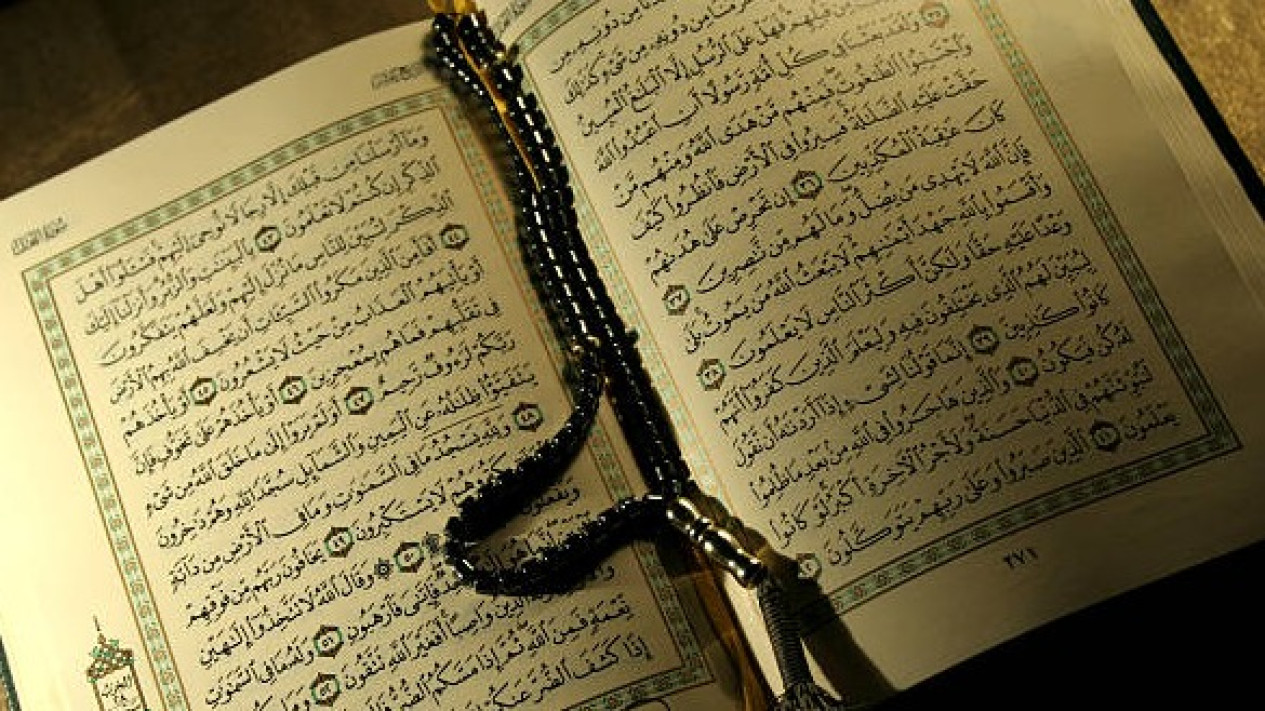 مِن دُونِهِۦ مِن
حَرَّمْنَا مِن دُونِهِۦ مِن شَىْءٍ كَذَٰلِكَ
مِن قَبْلِهِمْ فَهَلْ عَلَى ٱلرُّسُلِ إِلَّا ٱلْبَلَٰغُ ٱلْمُبِينُ
٣٥ وَلَقَدْ بَعَثْنَا فِى كُلِّ أُمَّةٍ رَّسُولًا أَنِ ٱعْبُدُوا۟ ٱللَّهَ
وَٱجْتَنِبُوا۟ ٱلطَّٰغُوتَ فَمِنْهُم مَّنْ هَدَى ٱللَّهُ وَمِنْهُم مَّنْ
حَقَّتْ عَلَيْهِ ٱلضَّلَٰلَةُ فَسِيرُوا۟ فِى ٱلْأَرْضِ فَٱنظُرُوا۟ كَيْفَ
كَانَ عَٰقِبَةُ ٱلْمُكَذِّبِينَ ٣٦ إِن تَحْرِصْ عَلَىٰ هُدَىٰهُمْ
فَإِنَّ ٱللَّهَ لَا يَهْدِى مَن يُضِلُّ وَمَا لَهُم مِّن نَّٰصِرِينَ ٣٧
وَأَقْسَمُوا۟ بِٱللَّهِ جَهْدَ أَيْمَٰنِهِمْ لَا يَبْعَثُ ٱللَّهُ مَن يَمُوتُ بَلَىٰ
وَعْدًا عَلَيْهِ حَقًّا وَلَٰكِنَّ أَكْثَرَ ٱلنَّاسِ لَا يَعْلَمُونَ ٣٨
لِيُبَيِّنَ لَهُمُ ٱلَّذِى يَخْتَلِفُونَ فِيهِ وَلِيَعْلَمَ ٱلَّذِينَ كَفَرُوٓا۟ أَنَّهُمْ
كَانُوا۟ كَٰذِبِينَ ٣٩ إِنَّمَا قَوْلُنَا لِشَىْءٍ إِذَآ أَرَدْنَٰهُ أَن نَّقُولَ
لَهُۥ كُن فَيَكُونُ ٤٠ وَٱلَّذِينَ هَاجَرُوا۟ فِى ٱللَّهِ مِنۢ بَعْدِ مَا ظُلِمُوا۟
لَنُبَوِّئَنَّهُمْ فِى ٱلدُّنْيَا حَسَنَةً وَلَأَجْرُ ٱلْءَاخِرَةِ أَكْبَرُ لَوْ كَانُوا۟
يَعْلَمُونَ ٤١ ٱلَّذِينَ صَبَرُوا۟ وَعَلَىٰ رَبِّهِمْ يَتَوَكَّلُونَ
٢٧١
سُورَةُ النَّحْلِ
وَمَآ أَرْسَلْنَا مِن قَبْلِكَ إِلَّا رِجَالًا نُّوحِىٓ إِلَيْهِمْ فَسْـَٔلُوٓا۟ أَهْلَ
ٱلذِّكْرِ إِن كُنتُمْ لَا تَعْلَمُونَ ٤٣ بِٱلْبَيِّنَٰتِ وَٱلزُّبُرِ وَأَنزَلْنَآ إِلَيْكَ
ٱلذِّكْرَ لِتُبَيِّنَ لِلنَّاسِ مَا نُزِّلَ إِلَيْهِمْ وَلَعَلَّهُمْ يَتَفَكَّرُونَ
٤٤ أَفَأَمِنَ ٱلَّذِينَ مَكَرُوا۟ ٱلسَّيِّـَٔاتِ أَن يَخْسِفَ ٱللَّهُ بِهِمُ ٱلْأَرْضَ
أَوْ يَأْتِيَهُمُ ٱلْعَذَابُ مِنْ حَيْثُ لَا يَشْعُرُونَ ٤٥ أَوْ يَأْخُذَهُمْ
فِى تَقَلُّبِهِمْ فَمَا هُم بِمُعْجِزِينَ ٤٦ أَوْ يَأْخُذَهُمْ عَلَىٰ تَخَوُّفٍ فَإِنَّ
رَبَّكُمْ لَرَءُوفٌ رَّحِيمٌ ٤٧ أَوَلَمْ يَرَوْا۟ إِلَىٰ مَا خَلَقَ ٱللَّهُ مِن شَىْءٍ
يَتَفَيَّؤُا۟ ظِلَٰلُهُۥ عَنِ ٱلْيَمِينِ وَٱلشَّمَآئِلِ سُجَّدًا لِّلَّهِ وَهُمْ دَٰخِرُونَ
٤٨ وَلِلَّهِ يَسْجُدُ مَا فِى ٱلسَّمَٰوَٰتِ وَمَا فِى ٱلْأَرْضِ مِن دَآبَّةٍ
وَهُمْ لَا يَسْتَكْبِرُونَ ٤٩ يَخَافُونَ رَبَّهُم مِّن فَوْقِهِمْ
وَيَفْعَلُونَ ٥٠ وَقَالَ ٱللَّهُ لَا تَتَّخِذُوٓا۟ إِلَٰهَيْنِ
إِنَّمَا هُوَ فَإِيَّٰىَ فَٱرْهَبُونِ ٥١ وَلَهُۥ مَا فِى ٱلسَّمَٰوَٰتِ
ٱلدِّينُ وَاصِبًا أَفَغَيْرَ ٱللَّهِ تَتَّقُونَ ٥٢ وَمَا
نِّعْمَةٍ فَمِنَ ٱللَّهِ ثُمَّ إِذَا مَسَّكُمُ ٱلضُّرُّ
إِذَا كَشَفَ ٱلضُّرَّ عَنكُمْ